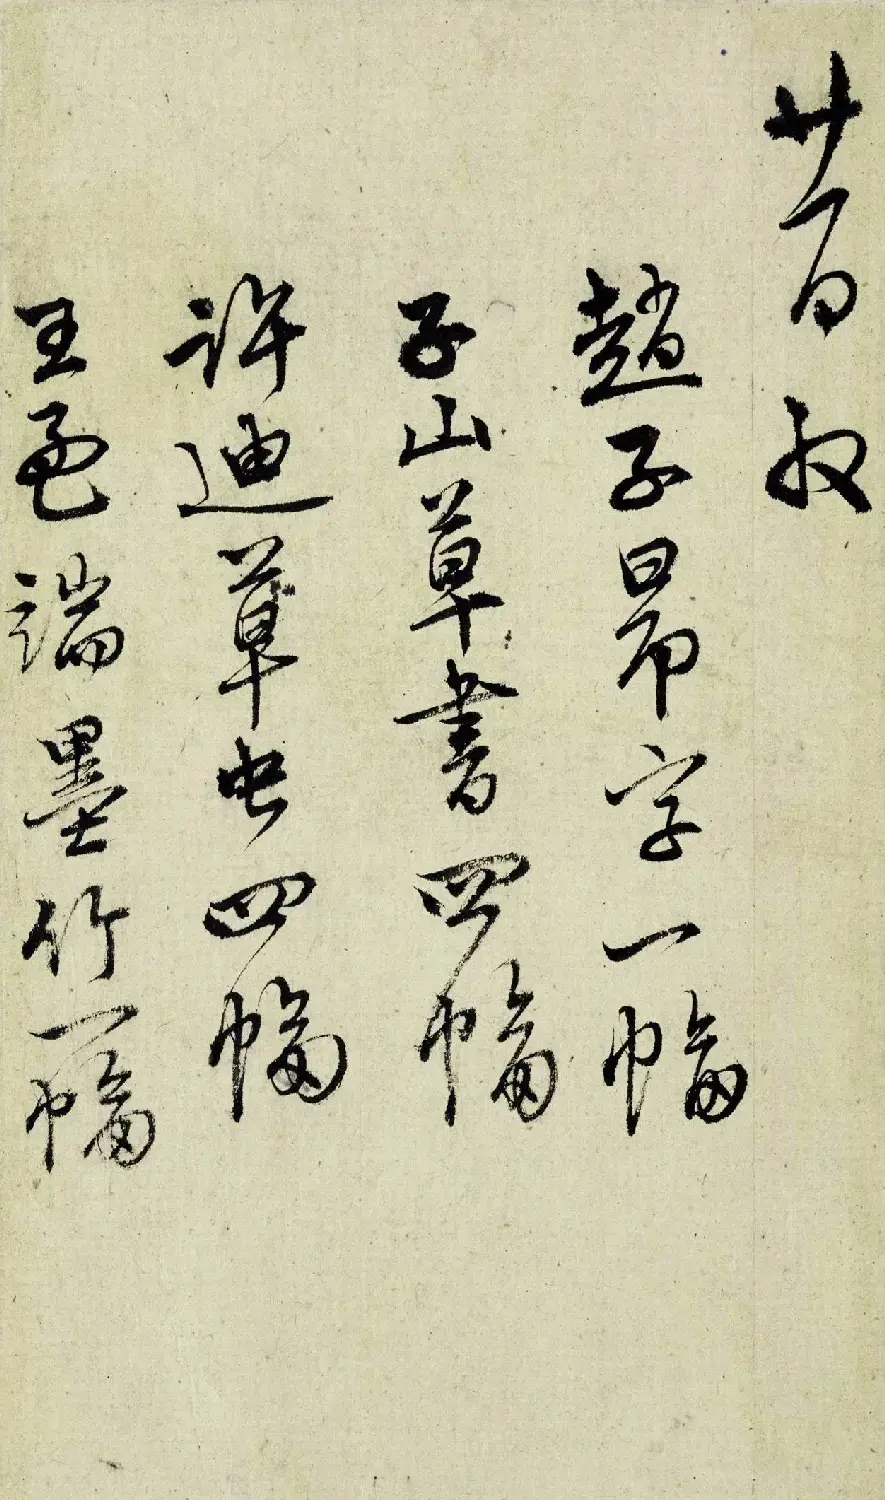 廿一日收
趙子昂字一幅
子山草書四幅
許迪草虫四幅
王孟端墨竹一幅